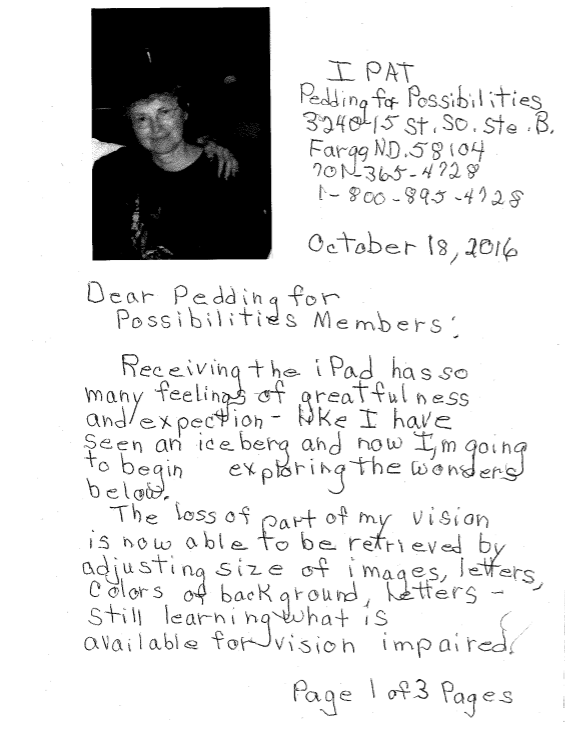 I PAT
Pedding for Possibilities
3240-15 St. So. Ste. B.
Fargo N.D. 58104
701-365-4728
1-800-895-4728
October 18, 2016
Dear Pedding for
Possibilities Members:
Receiving the iPad has so
many feelings of greatfulness
and expection - like I have
seen an iceberg and now I,m going
to begin exploring the wonders
below.
The loss of part of my vision
is now able to be retrieved by
adjusting size of images, letters,
colors of background, letters -
still learning what is
available for vision impaired.
Page 1 of 3 Pages